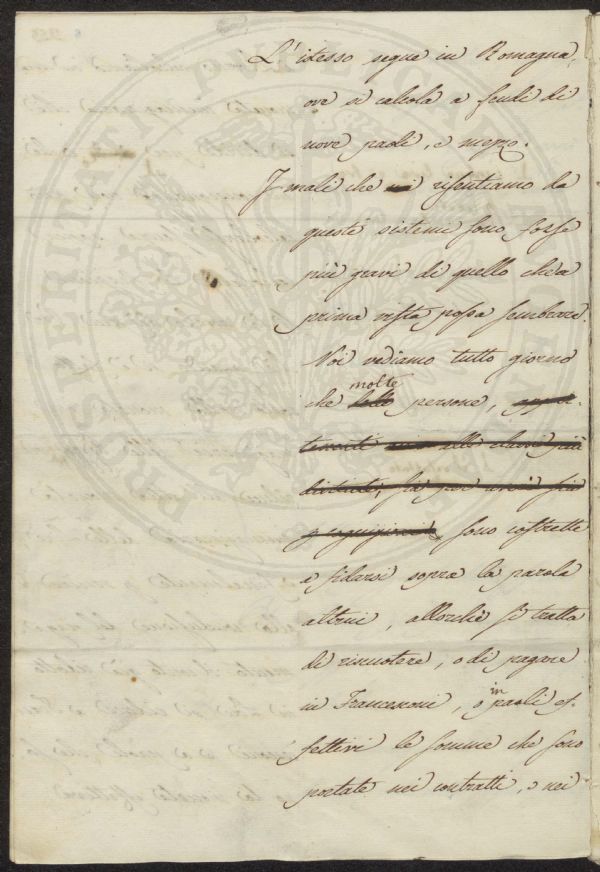 L'istesso segue in Romagna,
ove si calcola a scudi di
nove paoli, e mezzo.
I mali che noi risentiamo da
questi sistemi sono forse
più gravi di quello ch'a
prima vista possa sembrare.
Noi vediamo tutto giorno
molte
che persone, appar-
tenenti alle classi più
distinte,
sono costrette
a fidarsi sopra la parola
altrui, allorchè si tratta
di riscuotere, o di pagare
in
in Francesconi, o paoli ef-
fettivi le somme che sono
portate nei contratti, o nei
PROSPERITATI PUBLICAE AUGENDAE